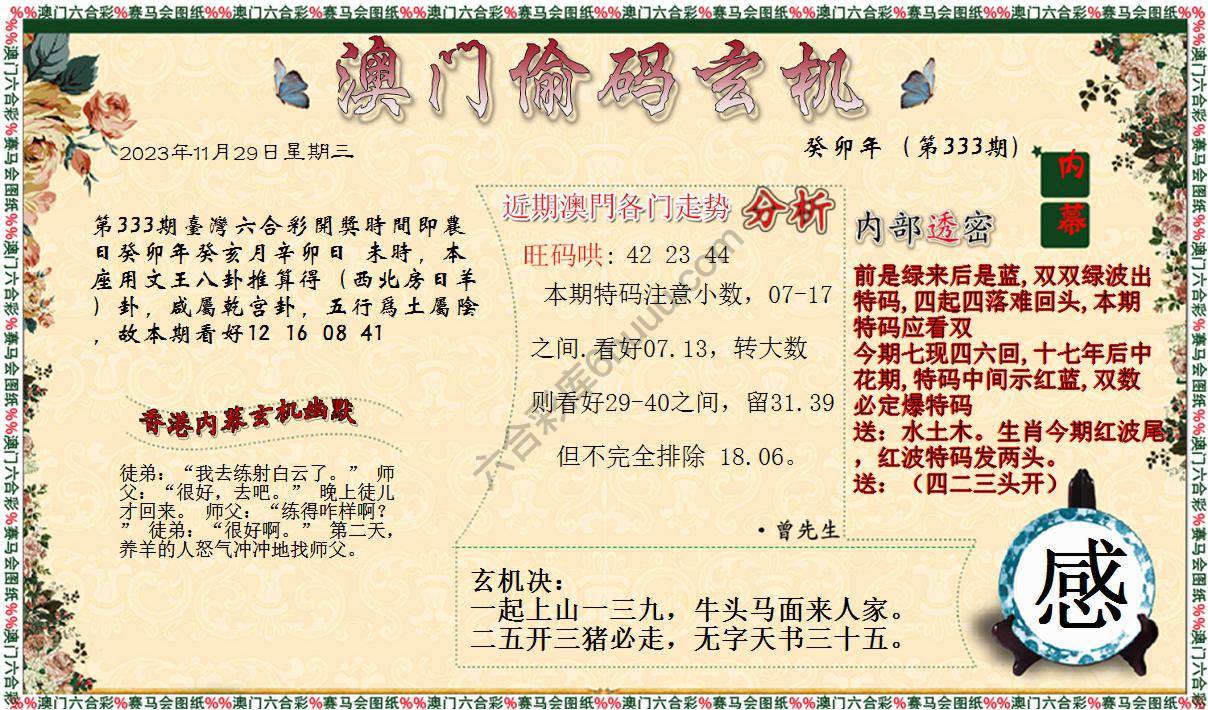 %%澳门六合彩%赛马会图纸%%澳门六合彩%赛马会图纸%%澳门六合彩%赛马会图纸%%澳门六合彩%赛马会图纸%%澳门六合彩%赛马会图纸%%澳门六合彩%赛马会图纸%
澳门偷码玄机
2023年11月29日星期三
癸卯年（第333期）
内幕
第333期臺灣六合彩開獎時間即農
日癸卯年癸亥月辛卯日 未時，本
座用文王八卦推算得（西北房日羊
）卦，咸屬乾宫卦，五行爲土屬陰
，故本期看好12 16 08 41
香港内幕玄机幽默
徒弟：“我去练射白云了。” 师
父：“很好，去吧。” 晚上徒儿
才回来。 师父：“练得咋样啊？
” 徒弟：“很好啊。” 第二天，
养羊的人怒气冲冲地找师父。
近期澳門各门走势 分析
旺码哄: 42 23 44
本期特码注意小数，07-17
之间.看好07.13，转大数
则看好29-40之间，留31.39
但不完全排除 18.06。
·曾先生
内部透密
前是绿来后是蓝,双双绿波出
特码,四起四落难回头,本期
特码应看双
今期七现四六回,十七年后中
花期,特码中间示红蓝,双数
必定爆特码
送：水土木。生肖今期红波尾
，红波特码发两头。
送：（四二三头开）
玄机决：
一起上山一三九，牛头马面来人家。
二五开三猪必走，无字天书三十五。
感
六合彩库6huuu.com
%%澳门六合彩%赛马会图纸%%澳门六合彩%赛马会图纸%%澳门六合彩%赛马会图纸%%澳门六合彩%赛马会图纸%%澳门六合彩%赛马会图纸%%澳门六合彩%赛马会图纸%